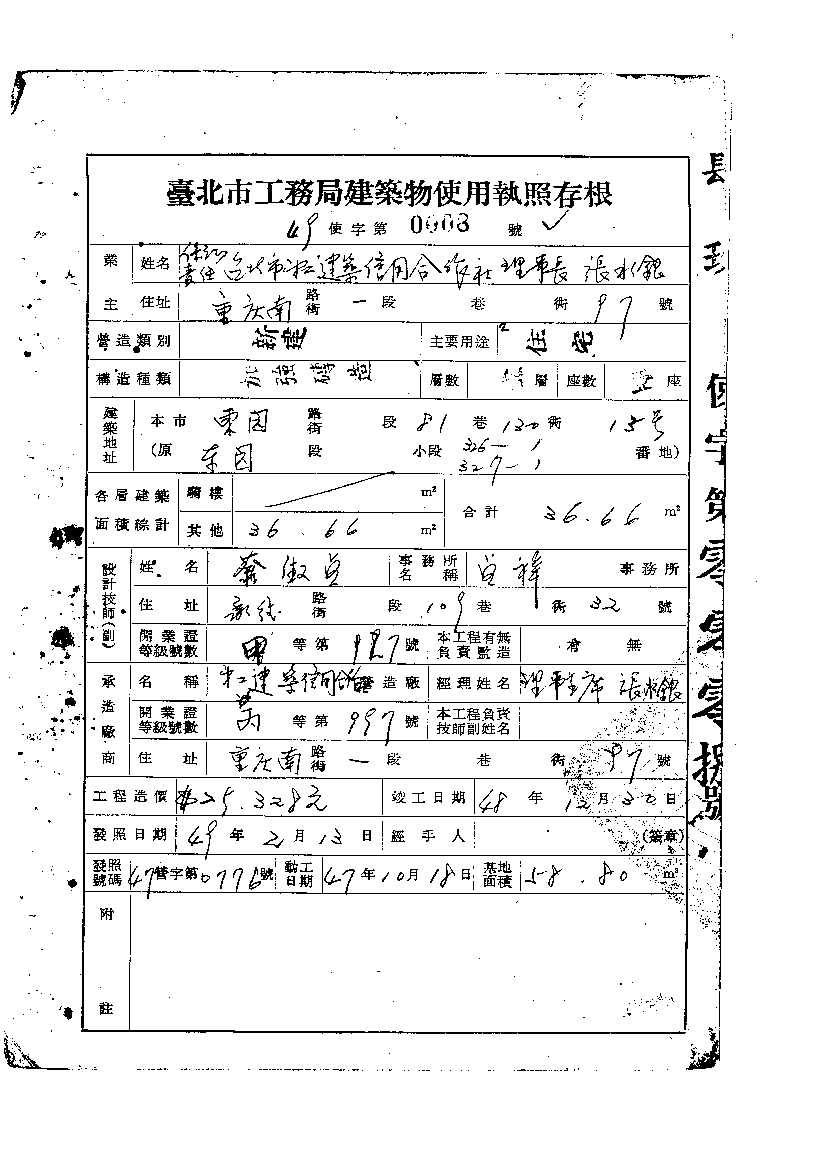 臺北市工務局建築物使用執照存根
49 使字第 0008 號
業主 姓名 保証責任台北市松建築信用合作社理事長 張水銀
住址 重庆南 路街 一段 巷 衖 97 號
營造類別 新建 主要用途 住宅
構造種類 加強磚造 層數 層 座數 座
建築地址 本市 東园 路街 段 81 巷 130 衖 15号
(原 东园 段 小段 326-1 番地)
327-1
各層建築面積綜計 騎樓 m² 合計 36.66 m²
其他 36.66 m²
設計技師(副) 姓名 蔡淑貞 事務所名稱 貞祥 事務所
住址 路街 段 109 巷 衖 32 號
開業證等級號數 甲 等第 927 號 本工程有無負責監造 有 無
承造廠商 名稱 松建築信用合作 營造廠 經理姓名 理事主席 張水銀
開業證等級號數 丙 等第 997 號 本工程負責技師副姓名
住址 重庆南 路街 一段 巷 衖 97 號
工程造價 $25.328元 竣工日期 48 年 12 月 30 日
發照日期 49 年 2 月 13 日 經手人 (簽章)
發照號碼 47 營字第 0776 號 動工日期 47 年 10 月 18 日 基地面積 58.80 m²
附註
使字第零零零捌號